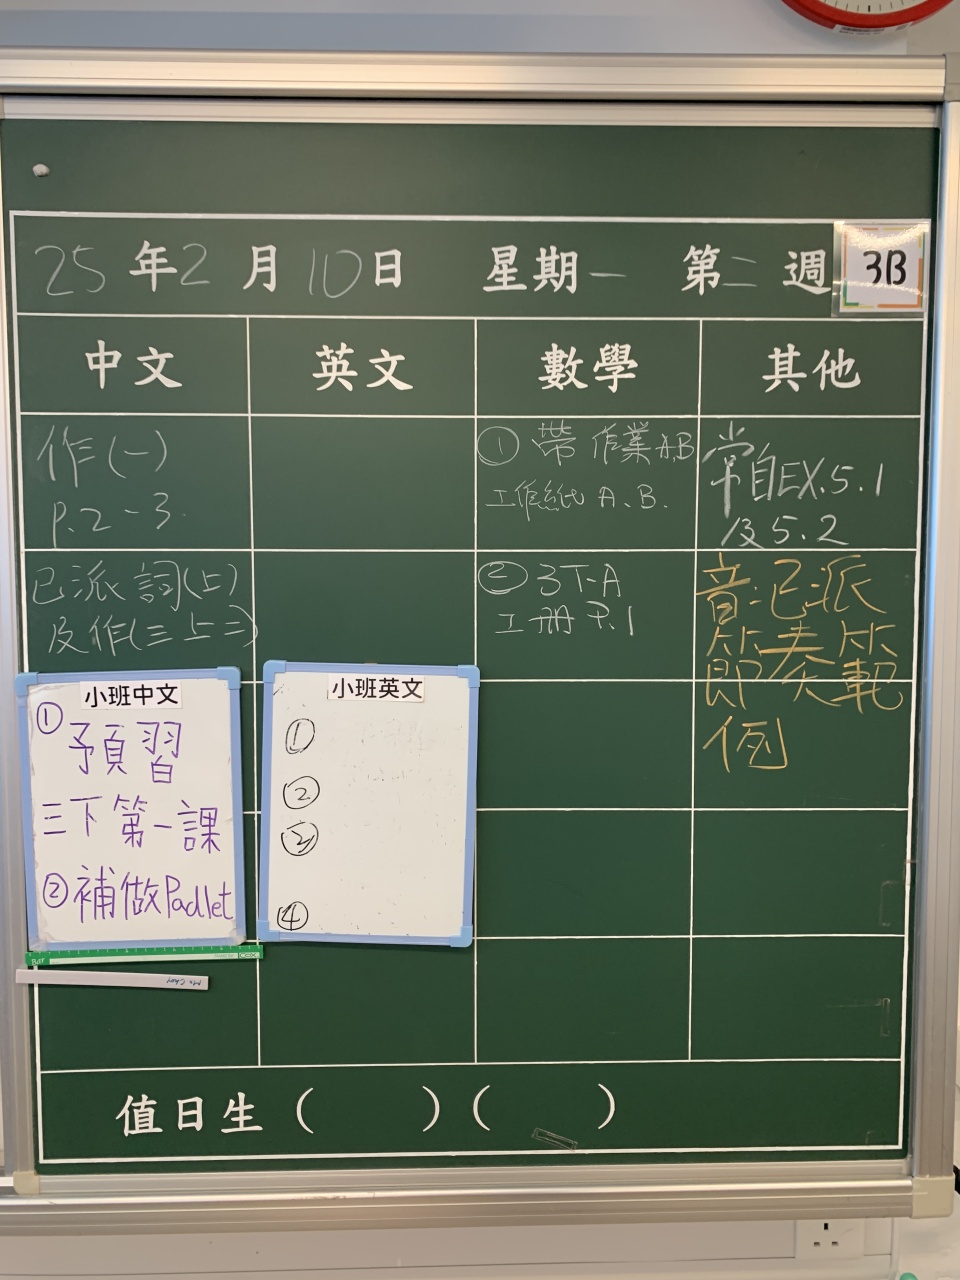 25年2月10日 星期一 第二週 3B
中文 英文 數學 其他
作(一)
P.2-3
已派詞(上)
及作(三上二)
小班中文
① 預習
三下第一課
② 補做Padlet
小班英文
①
②
③
④
① 帶作業A,B
工作紙 A、B.
② 3T-A
工冊 P.1
常自EX.5.1
及5.2
音:已派
節奏範
例
值日生( )( )